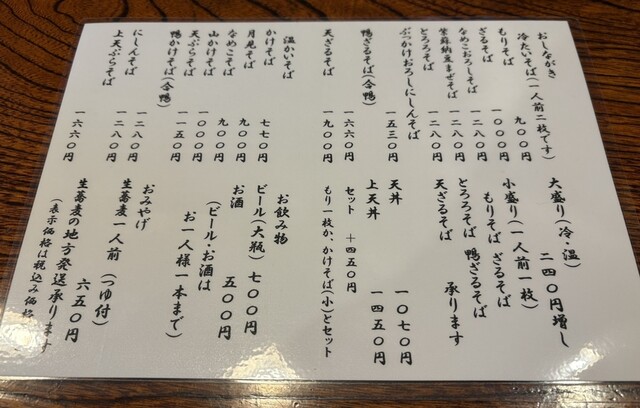 おしながき
冷たいそば(一人前二枚です)
もりそば 九〇〇円
ざるそば 一〇〇〇円
なめこおろしそば 一二八〇円
紫蘇納豆まぜそば 一二八〇円
とろろそば 一二八〇円
ぶっかけおろしにしんそば 一五三〇円
鴨ざるそば(合鴨) 一六六〇円
天ざるそば 一九〇〇円
温かいそば
かけそば 七七〇円
月見そば 九〇〇円
なめこそば 九〇〇円
山かけそば 一〇〇〇円
天ぷらそば 一一五〇円
鴨かけそば(合鴨) 一二八〇円
にしんそば 一二八〇円
上天ぷらそば 一六六〇円
大盛り(冷・温) 二四〇円増し
小盛り(一人前一枚)
もりそば ざるそば
とろろそば 鴨ざるそば
天ざるそば 承ります
天丼 一〇七〇円
上天丼 一四五〇円
セット +四五〇円
もり一枚か、かけそば(小)とセット
お飲み物
ビール(大瓶) 七〇〇円
お酒 五〇〇円
(ビール・お酒は
お一人様一本まで)
おみやげ
生蕎麦一人前(つゆ付)
六五〇円
生蕎麦の地方発送承ります
(表示価格は税込み価格